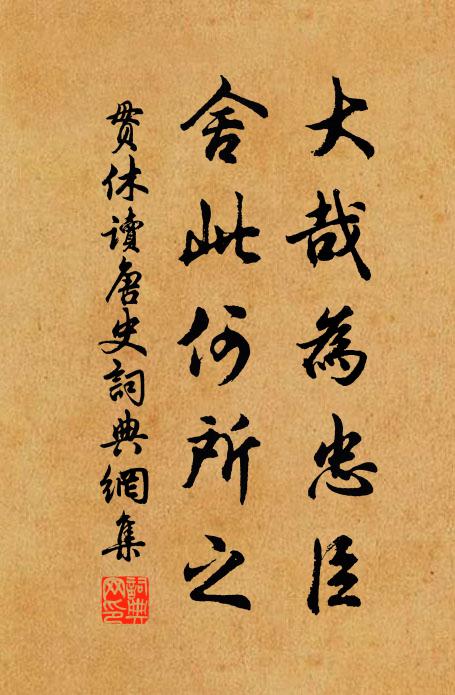 大哉為忠臣
舍此何所之
貫休讀唐史詞典網集
詞典網印